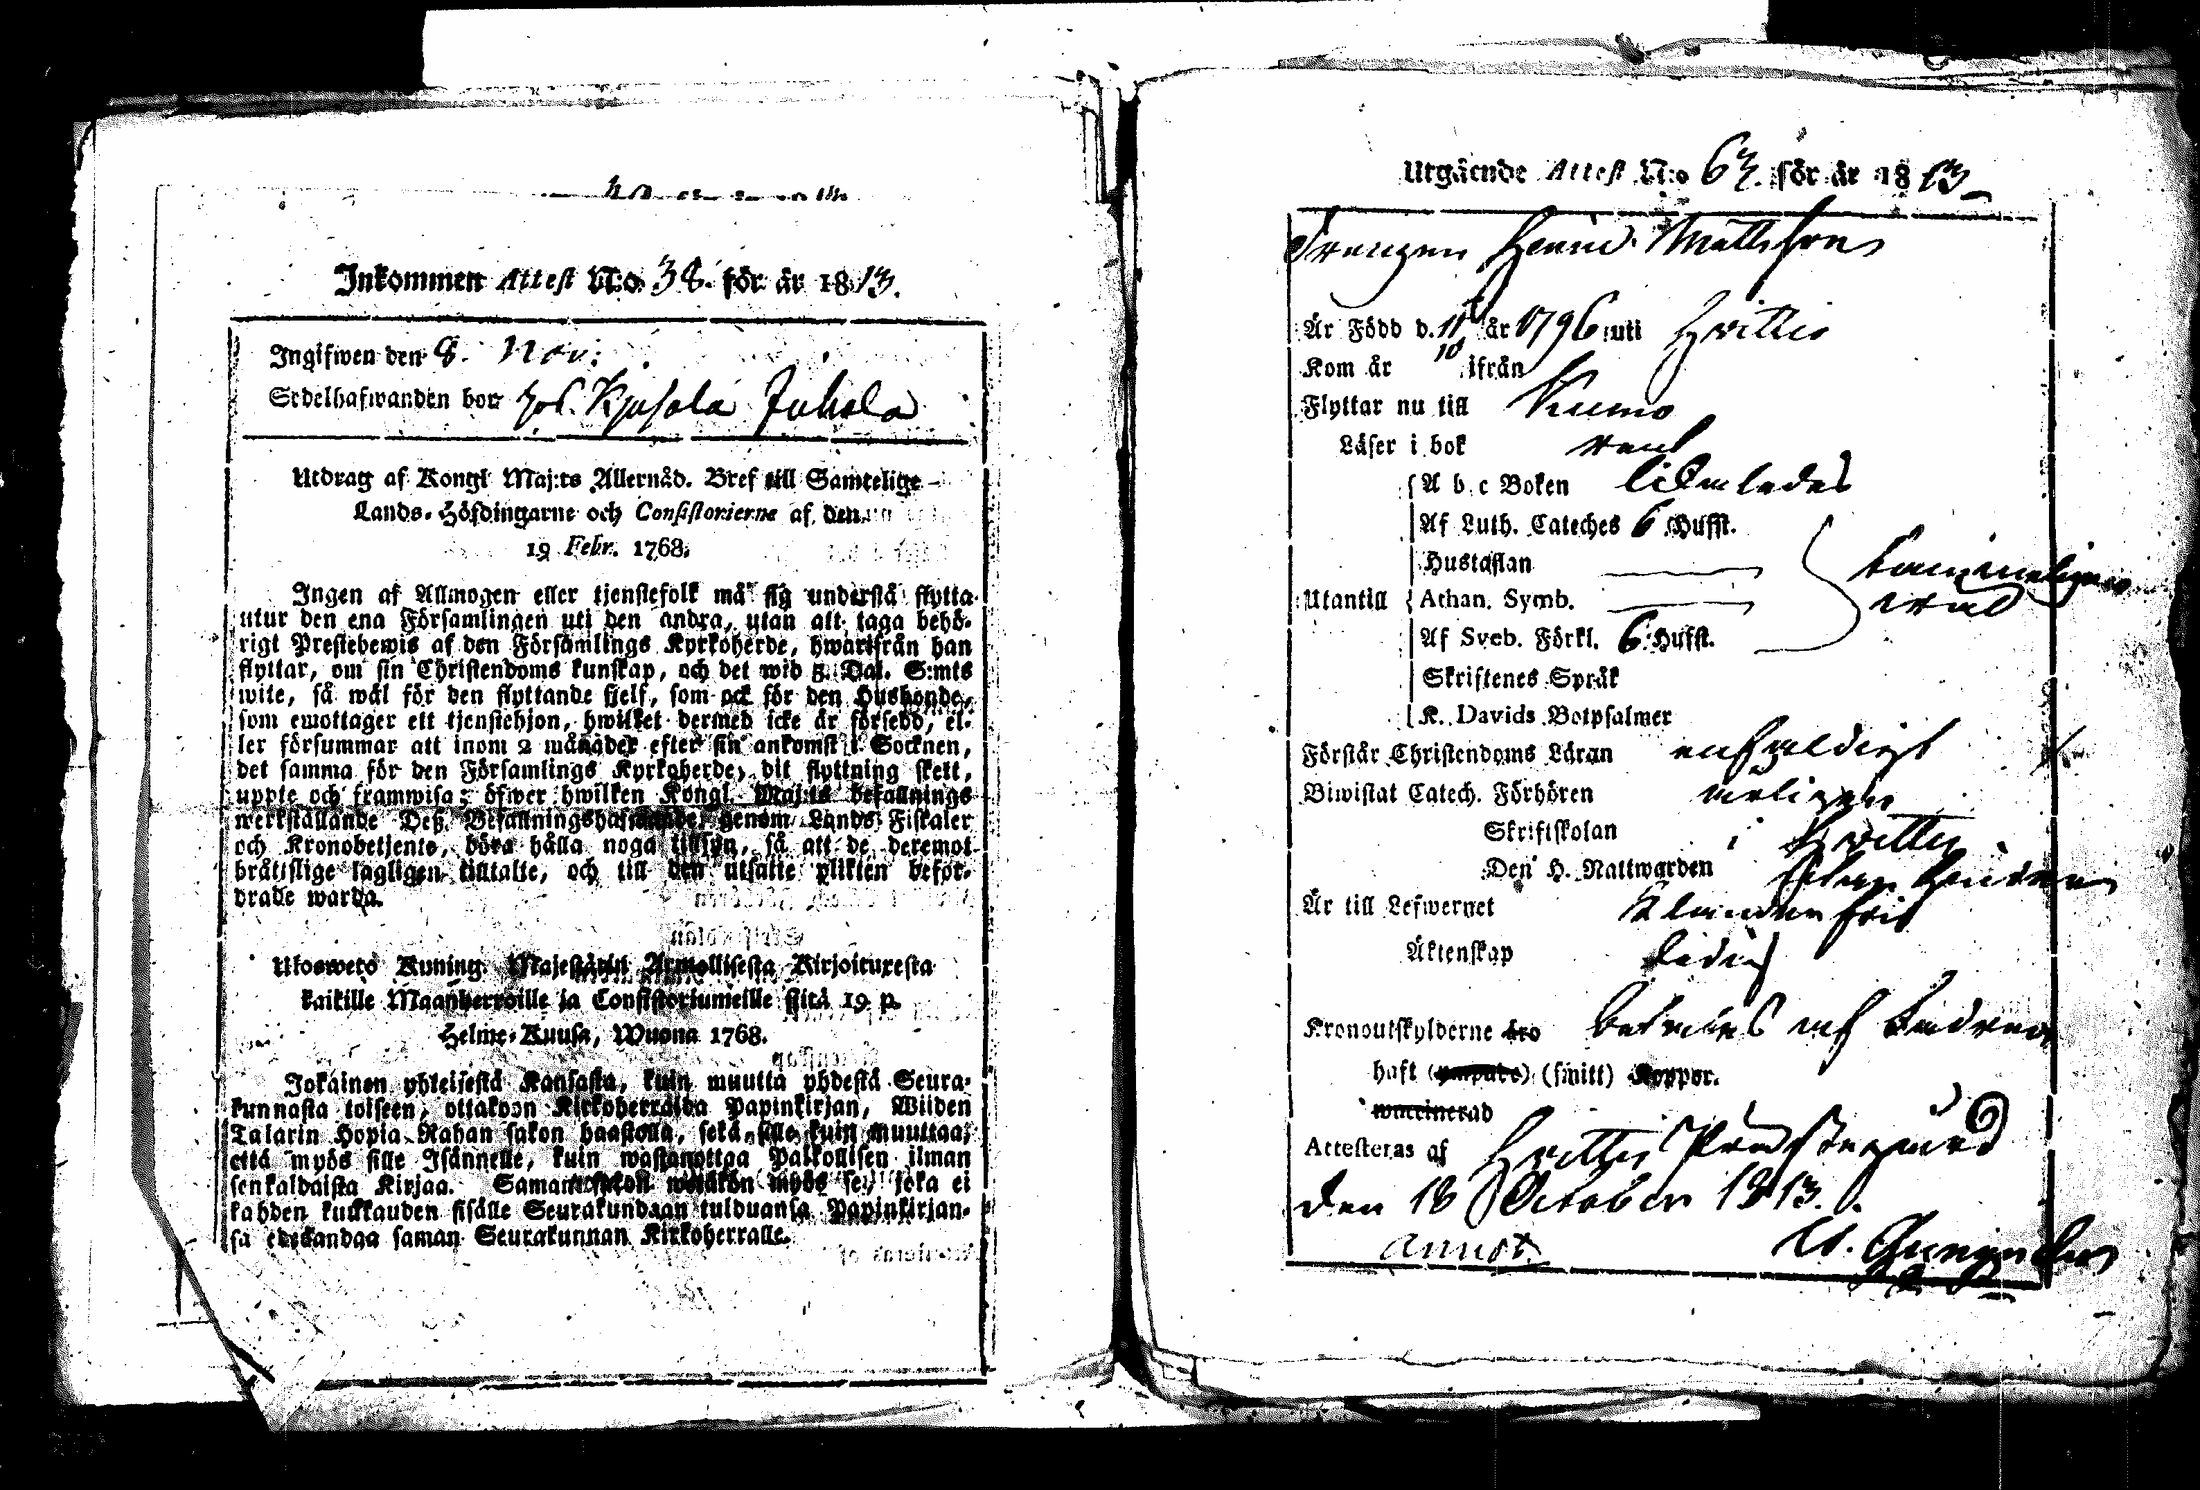 Inkommen Attest N:o 38. för år 1813.
Ingifwen den 8. Nov:
Sedelhafwanden bor hos Kjusola Juhola
Utdrag af Kongl Maj:ts Allernåd. Bref till Samtelige
Lands-Höfdingarne och Consistorierne af den
19 Febr. 1768.
Ingen af Allmogen eller tjenstefolk må sig understå flytta
utur den ena Församlingen uti den andra, utan att taga behö-
rigt Prestebewis af den Församlings Kyrkoherde, hwarifrån han
flyttar, om sin Christendoms kunskap, och det wid 3 Dal. S:mts
wite, så wäl för den flyttande sjelf, som ock för den Husbonde,
som emottager ett tjenstehjon, hwilket dermed icke är försedd, el-
ler försummar att inom 2 månader efter sin ankomst i Socknen,
det samma för den Församlings Kyrkoherde, dit flyttning skett,
uppte och framwisa; öfwer hwilken Kongl. Maj:ts befallnings
werkställande Deß Befallningshafwande, genom Lands Fiskaler
och Kronobetjente, böra hålla noga tillsyn, så att de deremot
bråttslige lagligen tilltalte, och till den utsatte plikten beför-
drade warda.
Ulosweto Kuning. Majestätin Armollisesta Kirjoituxesta
kaikille Maanherroille ja Consistoriumeille siitä 19 p.
Helme-Kuusa, Wuona 1768.
Jokainen yhteisestä Kansasta, kuin muutta yhdestä Seura-
kunnasta toiseen, ottakoon Kirkoherralda Papinkirjan, Wiiden
Talarin Hopia Rahan sakon haastolla, sekä sille kuin muuttaa,
että myös sille Isännelle, kuin wastanottaa Palkollisen ilman
senkaldaista Kirjaa. Saman sakon wetäkön myös se, joka ei
kahden kuukauden sisälle Seurakundaan tulduansa Papinkirjan-
sa edeskandaa saman Seurakunnan Kirkoherralle.
Utgående Attest N:o 63. för år 1813
Drengen Henric Mattsson
Är Född d. 11/10 år 1796 uti Hvittis
Kom år ifrån
Flyttar nu till Kumo
Läser i bok rent
A b c Boken likaledes
Af Luth. Cateches 6 Hufst.
Hustaflan
Utantill Athan. Symb.
Af Sveb. Förkl. 6 Hufst.
Skriftenes Språk
K. Davids Botpsalmer
Förstår Christendoms Läran enfaldigt
Biwistat Catech. Förhören årligen
Skriftskolan i Hvittis
Den H. Nattwarden
Är till Lefwernet Klanderfri
Äktenskap ledig
Kronoutskylderne äro betalas af
haft (ympade) (smitt) Koppor.
waccinerad
Attesteras af Hvittis Prästegård
den 18 October 1813.
annot.